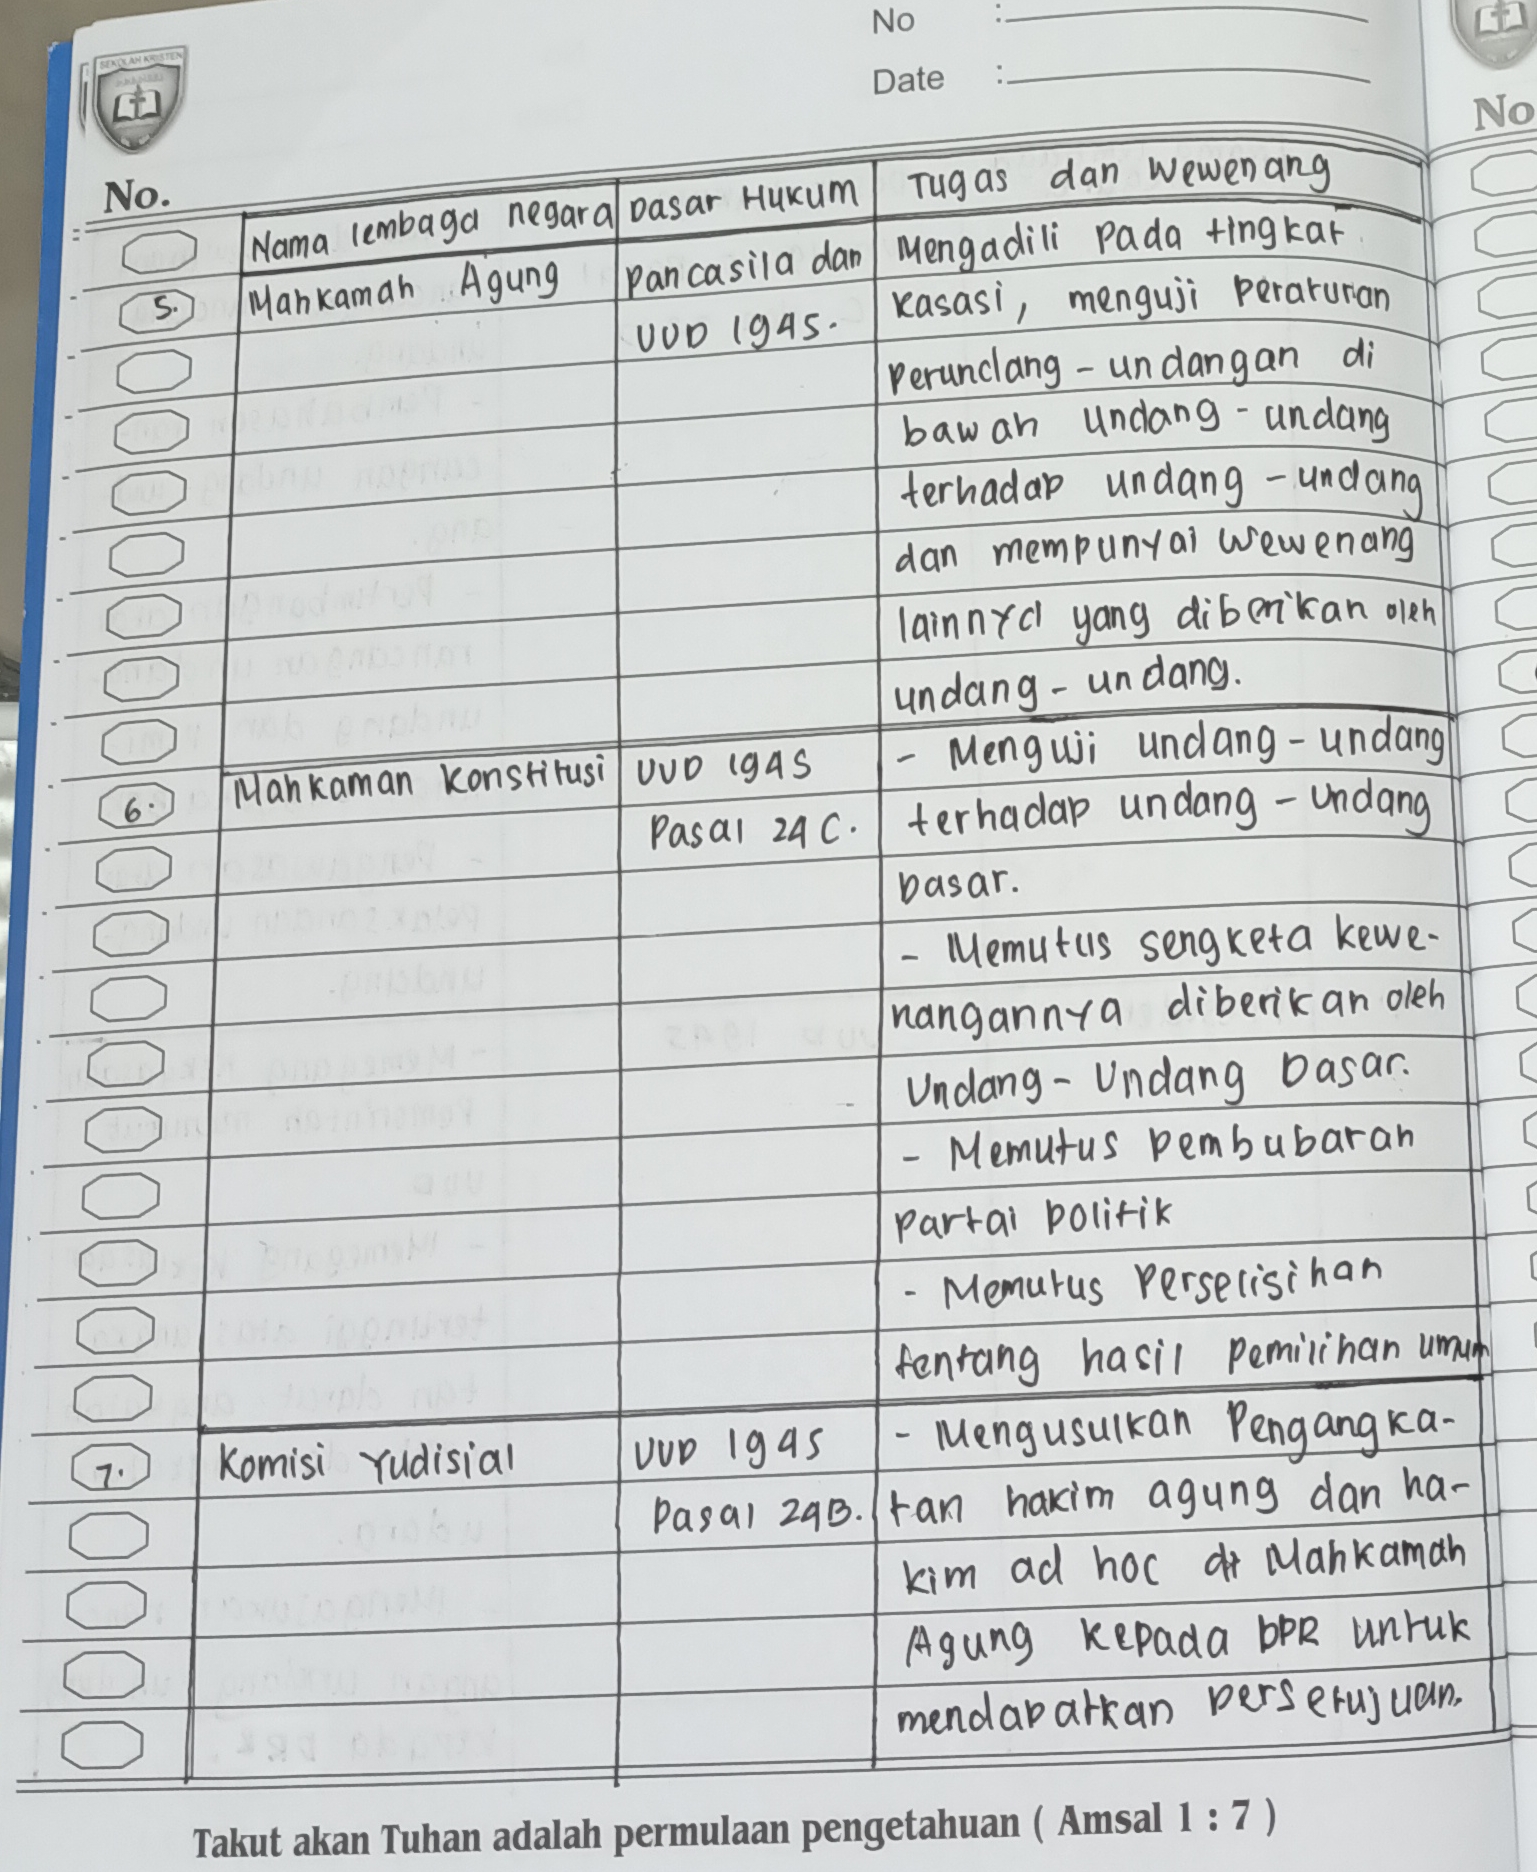 No :
Date :
SEKOLAH KRISTEN
No
No.
Nama lembaga negara Dasar Hukum Tugas dan wewenang
5. Mahkamah Agung Pancasila dan Mengadili pada tingkat
UUD 1945. kasasi, menguji peraturan
perundang - undangan di
bawah undang - undang
terhadap undang - undang
dan mempunyai wewenang
lainnya yang diberikan oleh
undang - undang.
6. Mahkaman Konstitusi UUD 1945 - Menguji undang - undang
Pasal 24 C. terhadap undang - undang
Dasar.
- Memutus sengketa kewe-
nangannya diberikan oleh
Undang - Undang Dasar.
- Memutus pembubaran
partai politik
- Memutus perselisihan
tentang hasil pemilihan umum
7. Komisi Yudisial UUD 1945 - Mengusulkan Pengangka-
Pasal 24B. tan hakim agung dan ha-
kim ad hoc di Mahkamah
Agung kepada DPR untuk
mendapatkan persetujuan.
Takut akan Tuhan adalah permulaan pengetahuan ( Amsal 1 : 7 )